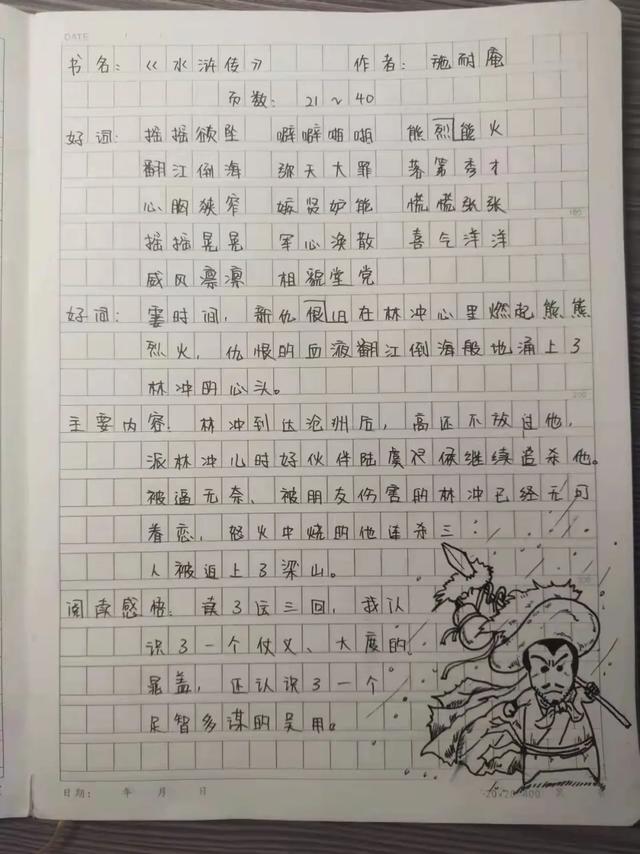 DATE
书名：《水浒传》 作者：施耐庵
页数：21～40
好词：摇摇欲坠 噼噼啪啪 熊烈熊火
翻江倒海 弥天大罪 落第秀才
心胸狭窄 嫉贤妒能 慌慌张张
摇摇晃晃 军心涣散 喜气洋洋
威风凛凛 相貌堂堂
好词：霎时间，新仇恨旧在林冲心里燃起熊熊
烈火，仇恨的血液翻江倒海般地涌上了
林冲的心头。
主要内容：林冲到达沧州后，高还不放过他，
派林冲儿时好伙伴陆虞候继续追杀他。
被逼无奈、被朋友伤害的林冲已经无可
眷恋，怒火中烧的他连杀三
人被迫上了梁山。
阅读感悟：读了这三回，我认
识了一个仗义、大度的
晁盖，还认识了一个
足智多谋的吴用。
日期： 年 月 日
20×20=400